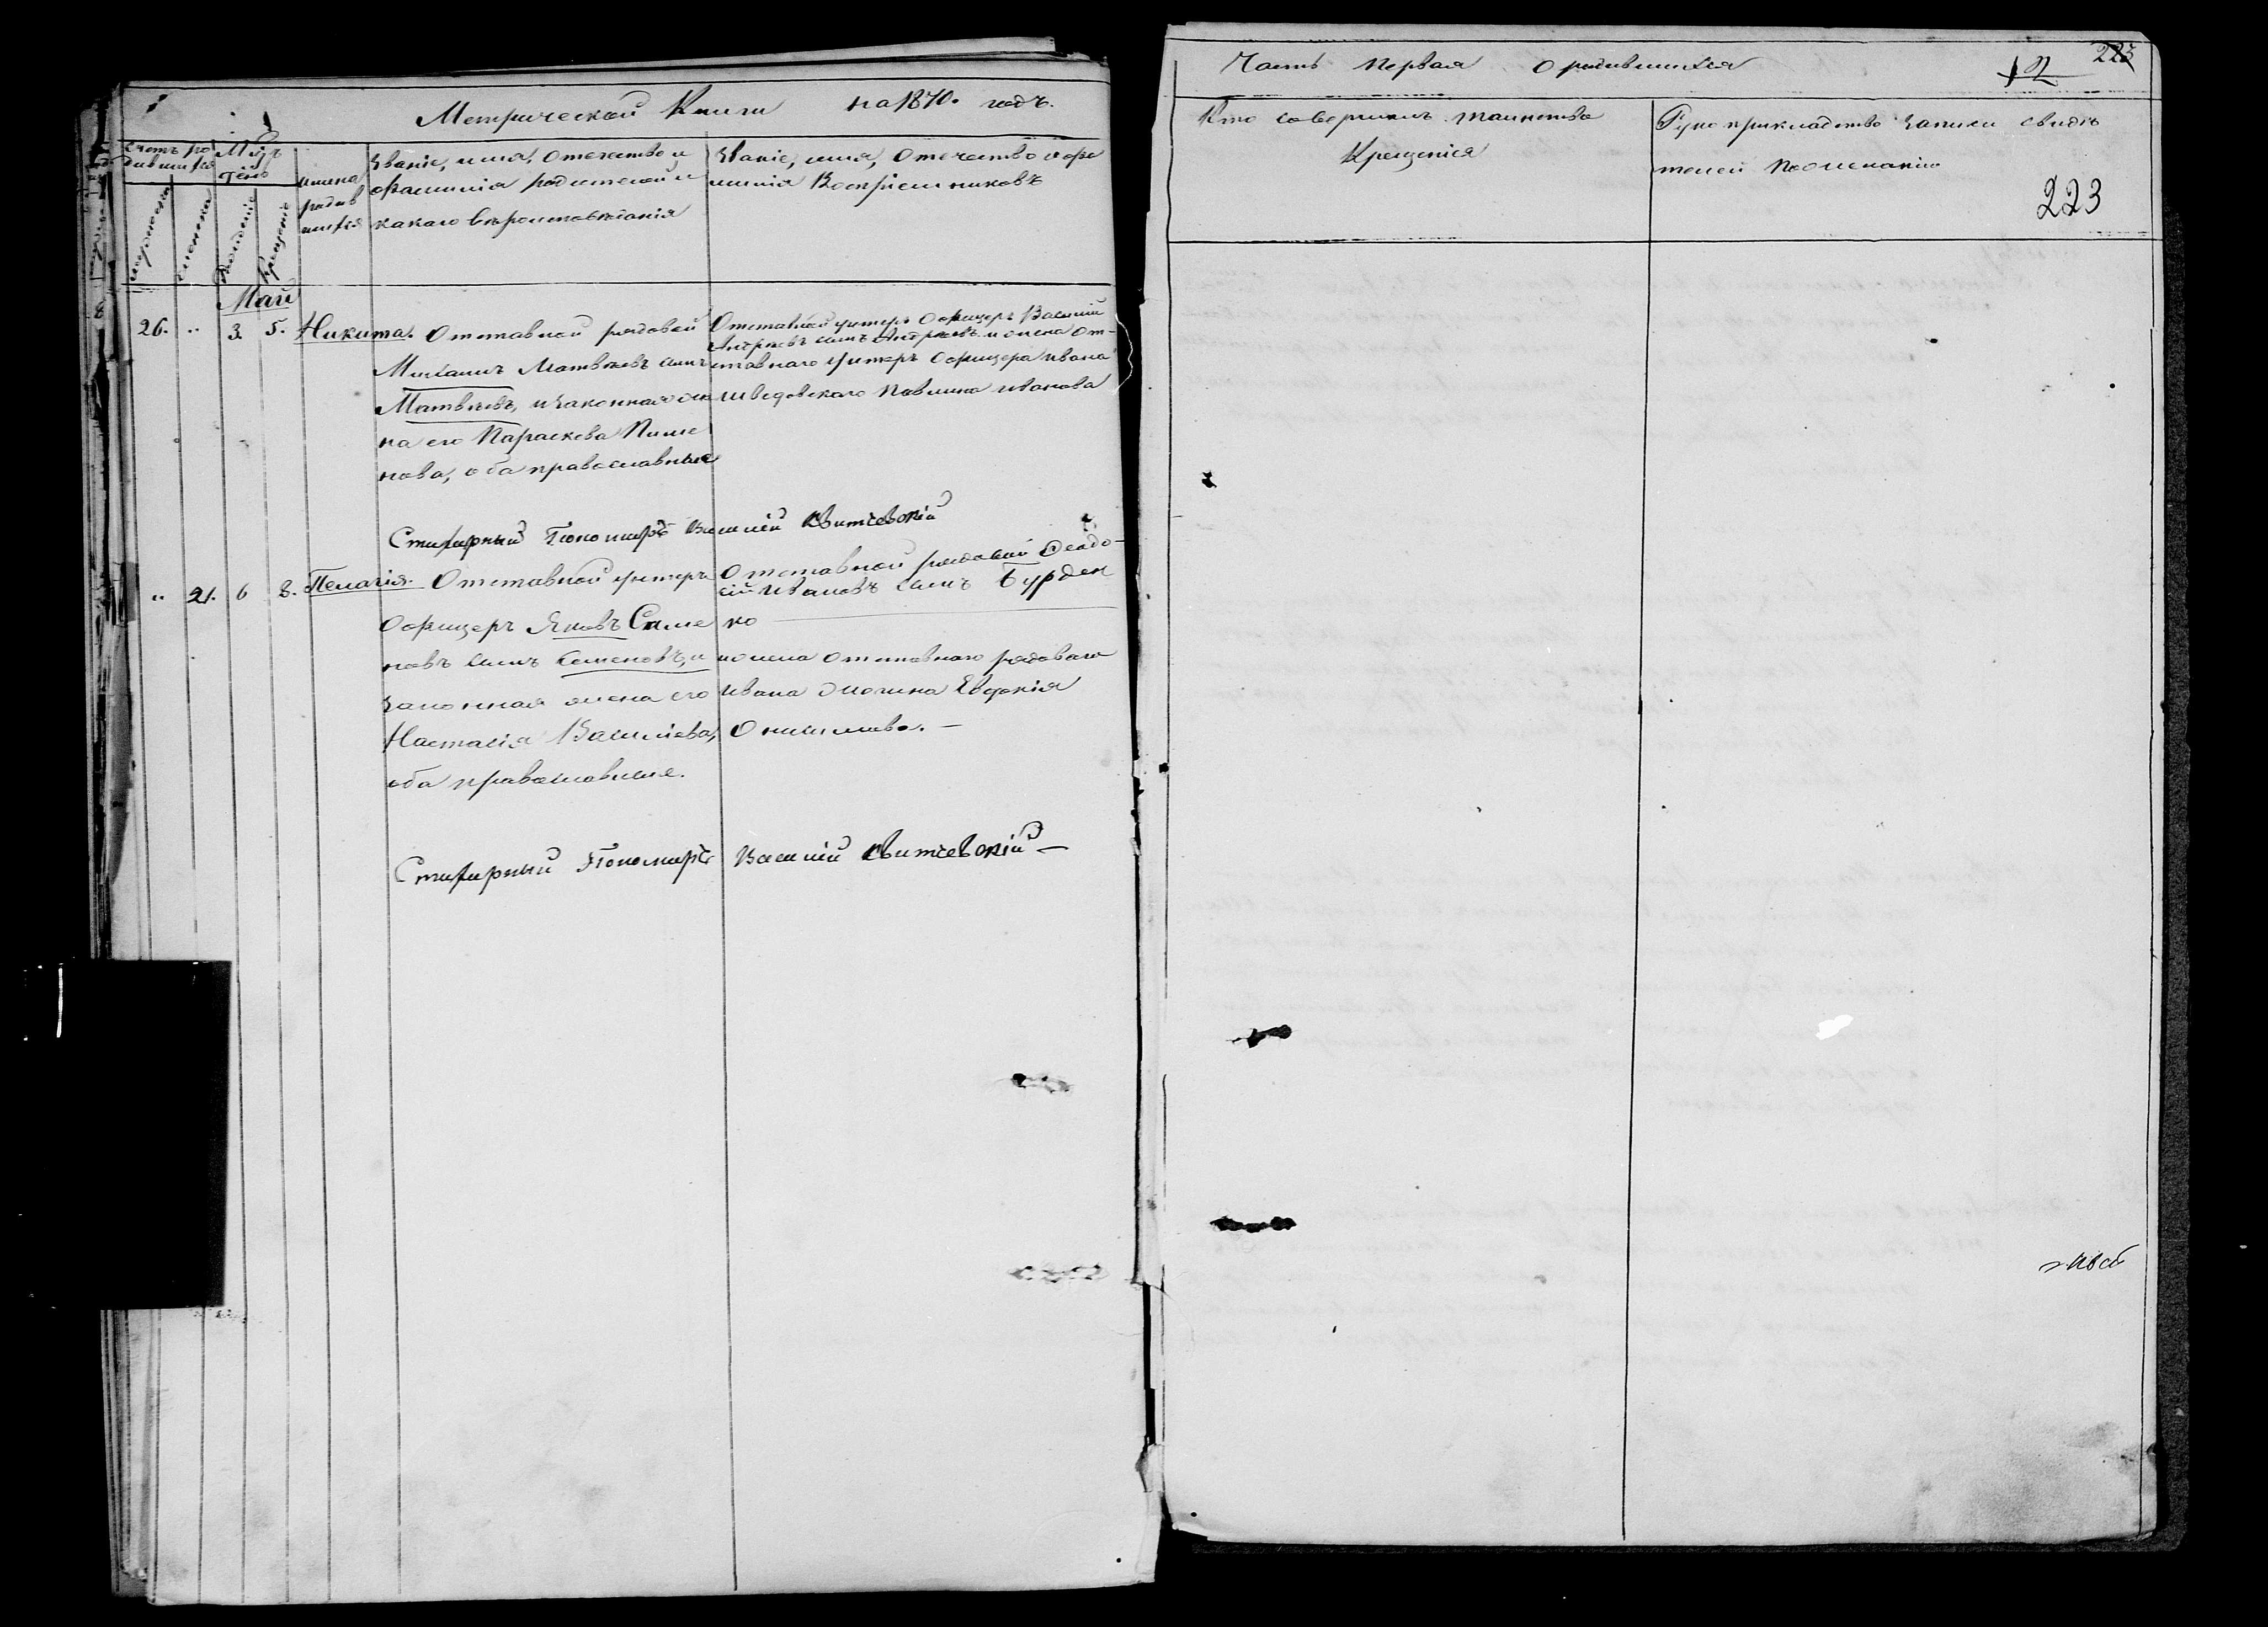 Метрической Книги на 1870. годъ.
Счетъ родившихся
Мѣсяцъ день
мужеска
женска
Рожденіе
Крещеніе
имена родившихся
Званіе, имя, отечество и
фамилія родителей и
какаго вѣроисповѣданія
Званіе, имя, отечество и фа
милія Воспріемниковъ
Май
26. „ 3. 5. Никита. Отставной рядовой
Михаилъ Матвѣевъ сынъ
Матвѣевъ, и законная же
на его Параскева Пиме
нова, оба православные
Отставной унтеръ Офицеръ Василій
Андреевъ сынъ Андреевъ и жена от-
ставнаго унтеръ Офицера Ивана
Шведовскаго Павлина Иванова
Стихарный Пономарь Василій Квитчевскій
„ 21. 6 8. Пелагія. Отставной унтеръ
Офицеръ Яковъ Семе
новъ сынъ Семеновъ, и
законная жена его
Настасія Василіева,
оба православные.
Отставной рядовой Феодо-
сій Ивановъ сынъ Бурден
ко
и жена отставнаго рядоваго
Ивана Евдокія
Стихарный Пономарь Василій Квитчевскій
Часть Первая О родившихся
223
Кто совершилъ таинство
Крещенія
Рукоприкладство записи свидѣ
телей по желанію
223